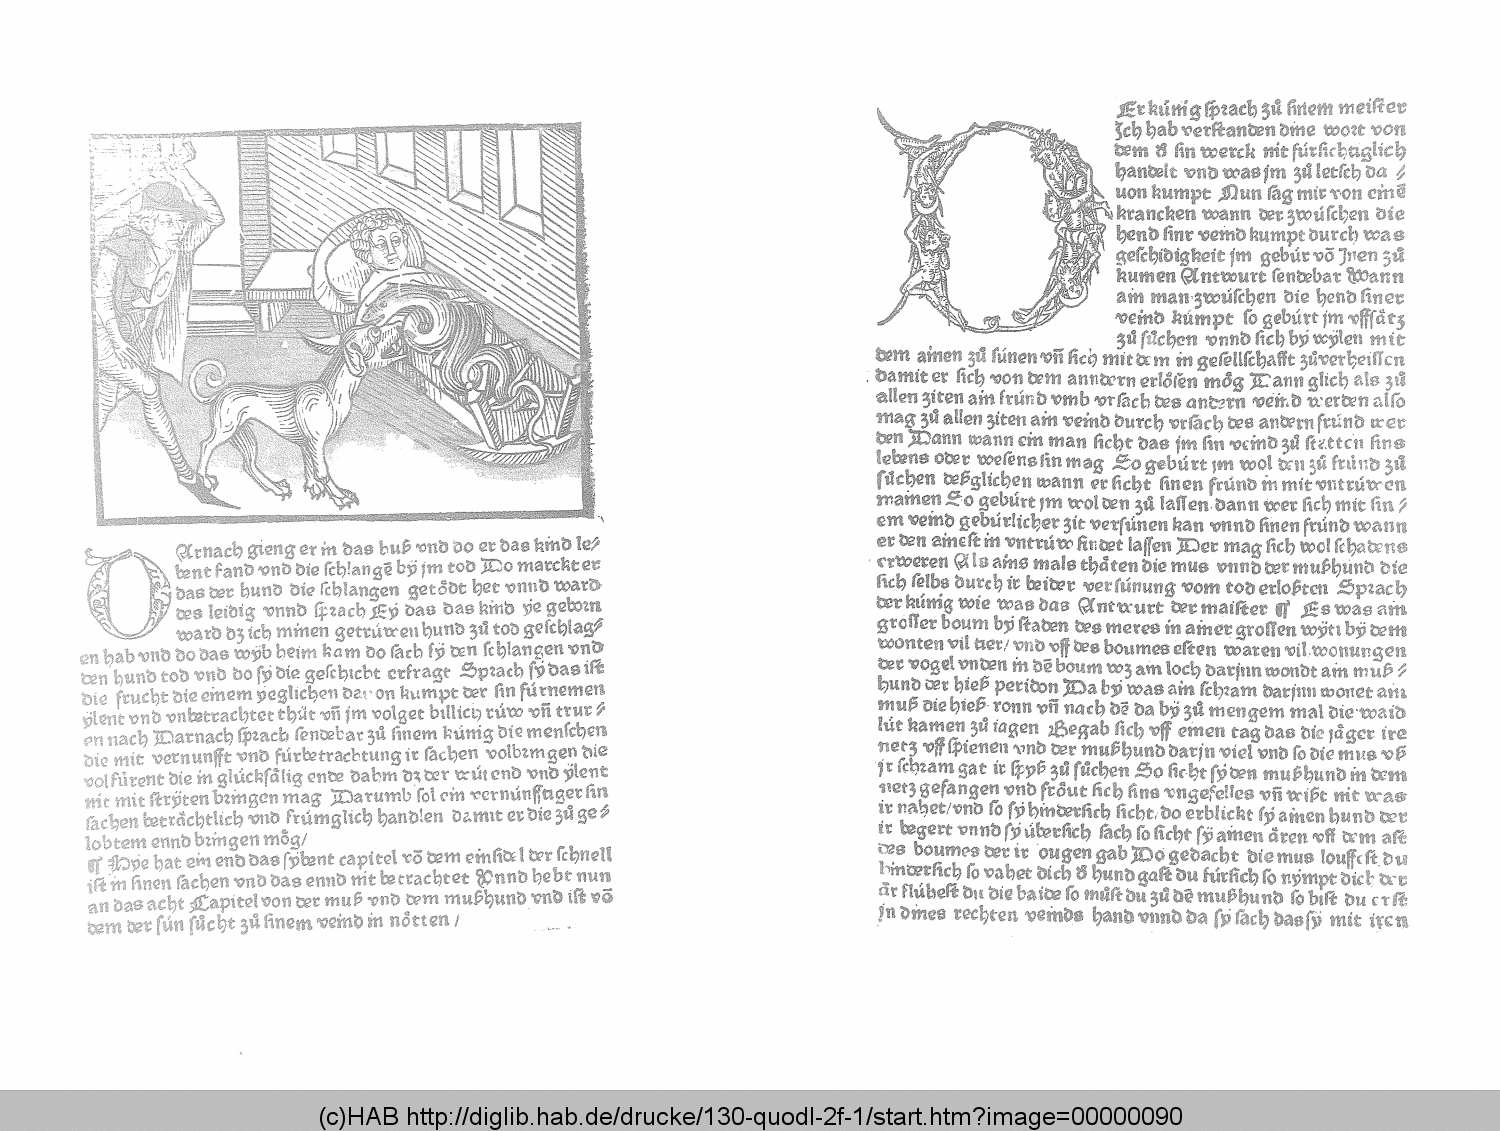 DArnach gieng er in das huß vnd do er das kind le⸗
bent fand vnd die schlangē bÿ jm tod Do marckt er
das der hund die schlangen getödt het vnnd ward
des leidig vnnd sprach Eÿ das das kind ÿe geborn
ward dz ich minen getrúwen hund zů tod geschlag⸗
en hab vnd do das wÿb heim kam do sach sÿ den schlangen vnd
den hund tod vnd do sÿ die geschicht erfragt Sprach sÿ das ist
die frucht die einem ÿeglichen dar von kumpt der sin fúrnemen
ÿlent vnd vnbetrachtet thůt vñ jm volget billich rúw vñ trur⸗
en nach Darnach sprach sendebar zů sinem kúnig die menschen
die mit vernunfft vnd fúrbetrachtung ir sachen volbringen die
volfúrent die in glúcksälig ende dahin dz der wútend vnd ÿlent
nit mit strÿten bringen mag Darumb sol ein vernúnfftiger sin
sachen beträchtlich vnd frúmglich handlen damit er die zů ge⸗
lobtem ennd bringen mög/
¶ Hÿe hat ein end das sÿbent capitel võ dem einsidel der schnell
ist in sinen sachen vnd das ennd nit betrachtet Vnnd hebt nun
an das acht Capitel von der muß vnd dem mußhund vnd ist võ
dem der sún sůcht zů sinem veind in nötten /
DEr kúnig sprach zů sinem meister
Jch hab verstanden dine wort von
dem d̕ sin werck nit fúrsichtiglich
handelt vnd was jm zů letsch da⸗
uon kumpt Nun sag mir von einē
krancken wann der zwúschen die
hend sinr veind kumpt durch was
geschidigkeit jm gebúr võ Jnen zů
kumen Antwurt sendebar Wann
ain man zwúschen die hend siner
veind kúmpt so gebúrt jm vffsätz
zů sůchen vnnd sich bÿ wÿlen mit
dem ainen zů súnen vñ sich mit dem in gesellschafft zůverheissen
damit er sich von dem anndern erlösen mög Dann glich als zů
allen ziten ain frúnd vmb vrsach des andern veind werden also
mag zů allen ziten ain veind durch vrsach des andern frúnd wer
den Dann wann ein man sicht das jm sin veind zů stetten sins
lebens oder wesens sin mag So gebúrt jm wol den zů frúnd zů
sůchen deßglichen wann er sicht sinen frúnd in mit vntrúwen
mainen So gebúrt jm wol den zů lassen dann wer sich mit sin⸗
em veind gebúrlicher zit versúnen kan vnnd sinen frúnd wann
er den ainest in vntrúw findet lassen Der mag sich wol schadens
erweren Als ains mals thäten die mus vnnd der mußhund die
sich selbs durch ir beider versúnung vom tod erloßten Sprach
der kúnig wie was das Antwurt der maister ¶ Es was ain
grosser boum bÿ staden des meres in ainer grossen wÿti bÿ dem
wonten vil tier/ vnd vff des boumes esten waren vil wonungen
der vogel vnden in dē boum wz am loch darjnn wondt ain muß⸗
hund der hieß peridon Da bÿ was ain schram darjnn wonet ain
muß die hieß ronn vñ nach dē da bÿ zů mengem mal die waid
lút kamen zů iagen Begab sich vff einen tag das die jäger ire
netz vff spienen vnd der mußhund darjn viel vnd so die mus vß
jr schram gat ir spÿß zů sůchen So sicht sÿ den mußhund in dem
netz gefangen vnd fröut sich sins vngefelles vñ wißt nit was
ir nahet/ vnd so sÿ hindersich sicht/ do erblickt sÿ ainen hund der
ir begert vnnd sÿ úbersich sach so sicht sÿ ainen ären vff dem ast
des boumes der ir ougen gab Do gedacht die mus louffest du
hindersich so vahet dich d̕ hund gast du fúrsich so nÿmpt dich der
är flúhest du die baide so můst du zů dē mußhund so bist du erst
jn dines rechten veinds hand vnnd da sÿ sach das sÿ mit iren
(c)HAB http://diglib.hab.de/drucke/130-quodl-2f-1/start.htm?image=00000090